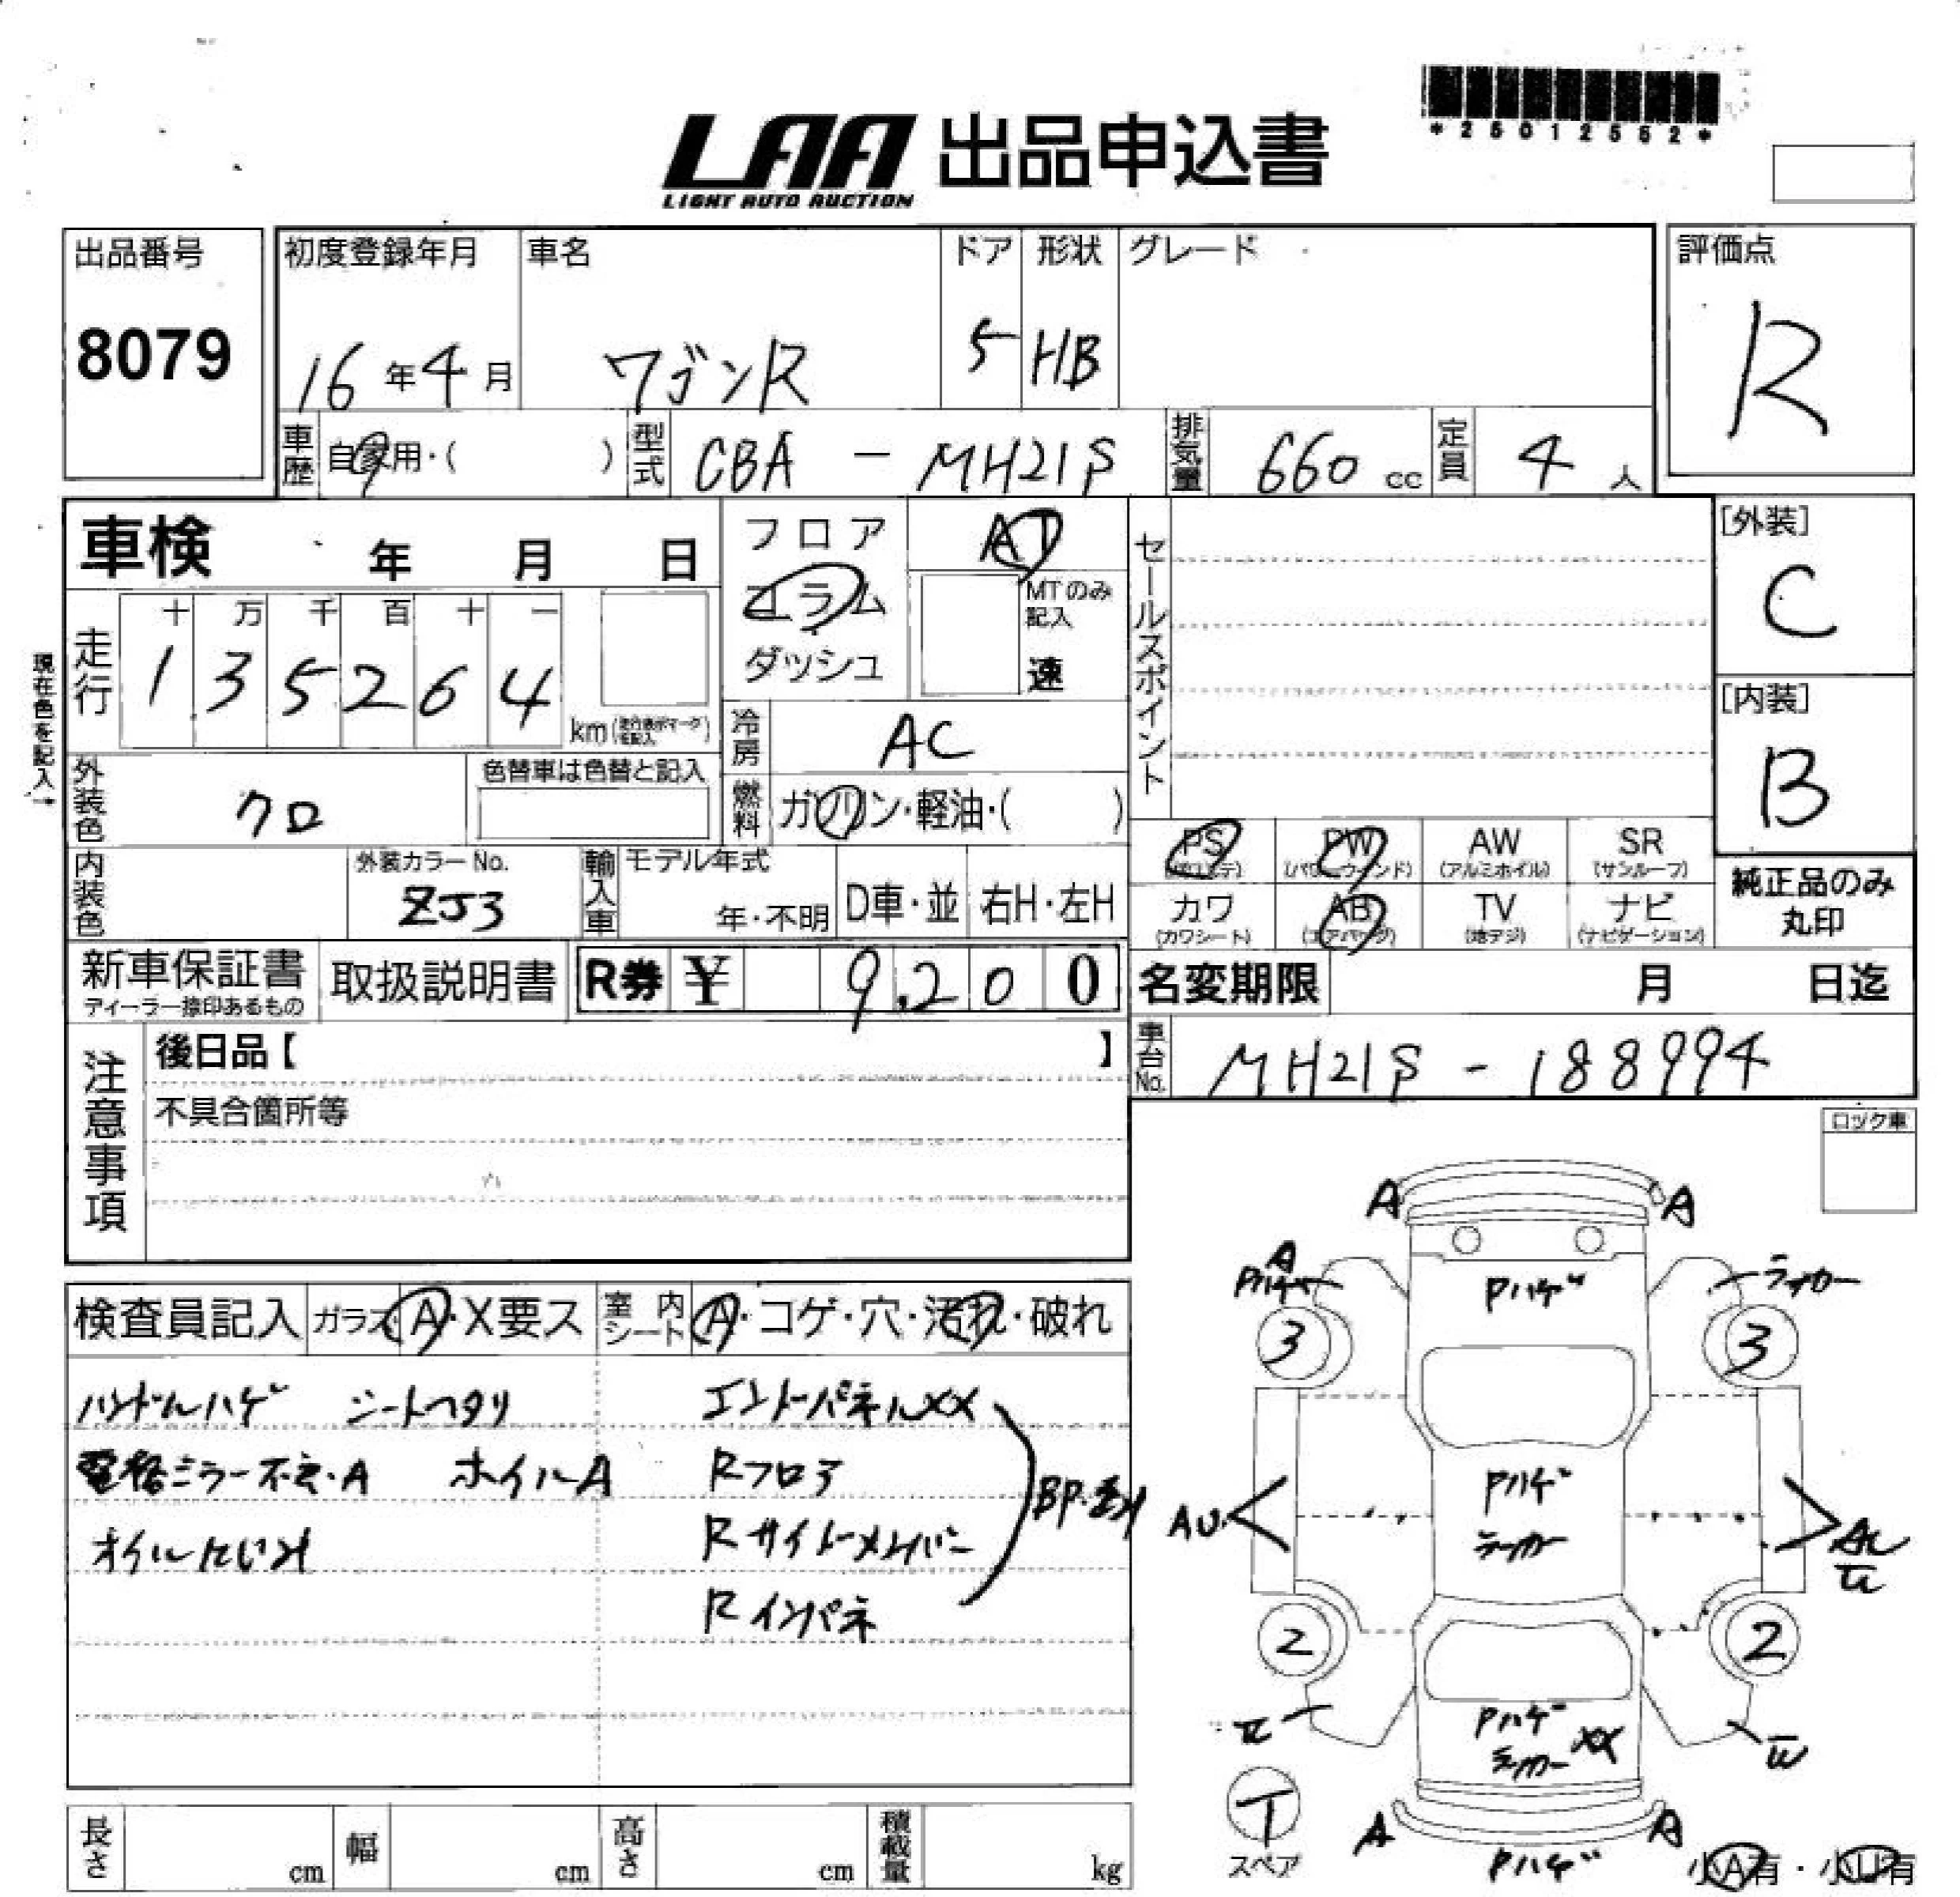 *25012552*
LAA 出品申込書
LIGHT AUTO AUCTION
出品番号
8079
初度登録年月
16年4月
車名
ワゴンR
ドア
5
形状
HB
グレード
評価点
R
車歴 自家用・( )
型式 CBA - MH21S
排気量 660 cc
定員 4 人
車検 年 月 日
現在色を記入→
走行
十 万 千 百 十 一
1 3 5 2 6 4
km
フロア
コラム
ダッシュ
AT
MTのみ記入
速
冷房 AC
燃料 ガソリン・軽油・( )
セールスポイント
[外装]
C
[内装]
B
外装色 クロ
色替車は色替と記入
内装色
外装カラーNo.
ZJ3
輸入車
モデル年式
年・不明
D車・並
右H・左H
PS
(パワステ)
PW
(パワーウインド)
AW
(アルミホイル)
SR
(サンルーフ)
カワ
(カワシート)
AB
(エアバッグ)
TV
(地デジ)
ナビ
(ナビゲーション)
純正品のみ
丸印
新車保証書
ディーラー捺印あるもの
取扱説明書
R券 ¥ 9,200
名変期限 月 日迄
車台No. MH21S - 188994
注意事項
後日品【 】
不具合箇所等
ロック車
検査員記入
ガラス A・X要ス
室内シート A・コゲ・穴・汚れ・破れ
ハンドルハゲ シートヘタリ
電格ミラー不良・A ホイルA
オイルにじみ
エンドパネルXX
Rフロア
Rサイドメンバー
Rインパネ
A A
A
Pハゲ
Pハゲ
ラッカー
3 3
Pハゲ
ラッカー
AU
2 2
Pハゲ
ラッカー XX
T
スペア
A A
Pハゲ
小A有・小U有
長さ cm
幅 cm
高さ cm
積載量 kg